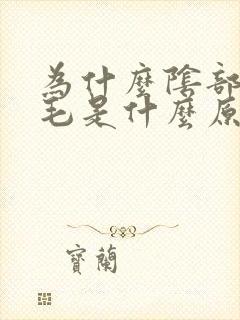 為什麼陰部
毛是什麼原
寶蘭